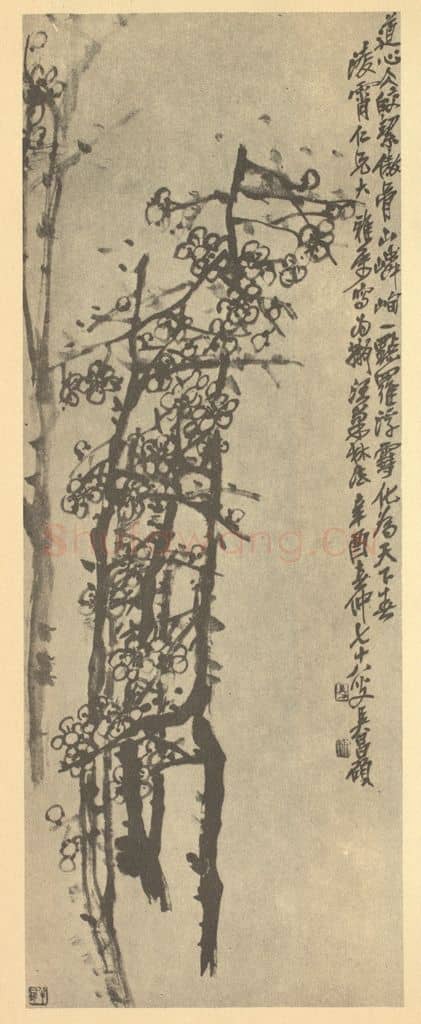 道心人皎絜傲骨山嶙峋一點羅浮雪化為天下春
陵霄仁兄大雅屬寫擬汪巢林法辛酉春仲七十八叟吳昌碩
Shufawang.CN